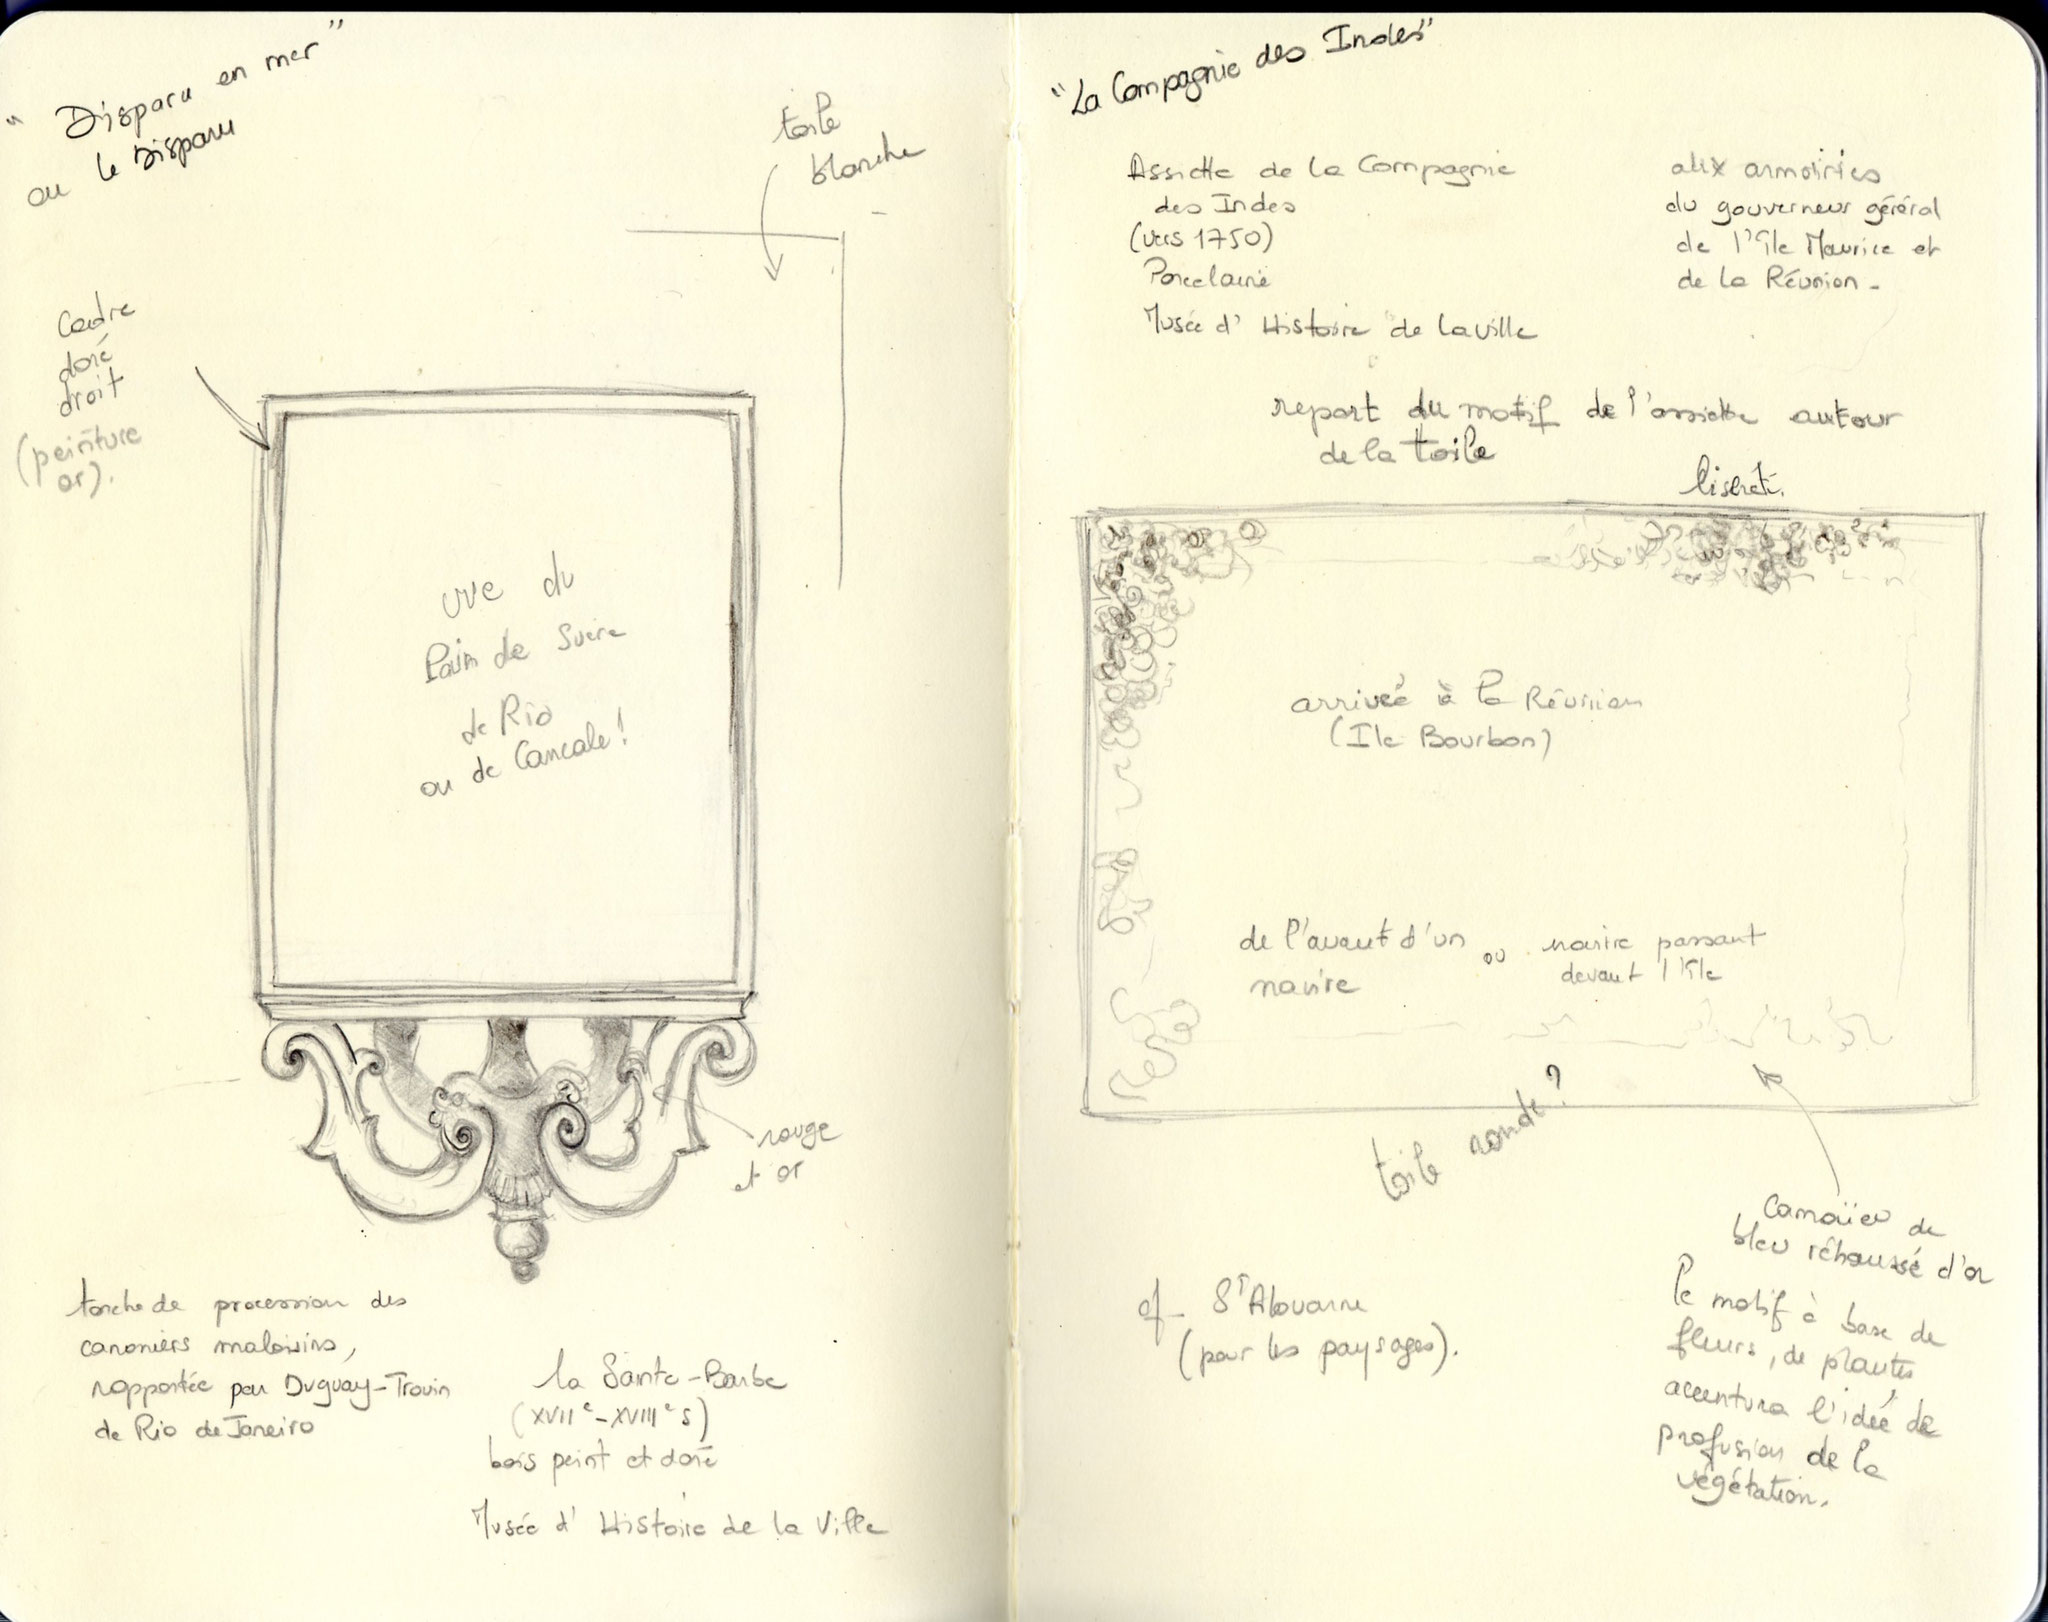 "Disparu en mer"
ou le Disparu
toile
blanche
Cadre
doré
droit
(peinture
or).
vue du
Pain de Sucre
de Rio
ou de Cancale !
rouge
et or
torche de procession des
canoniers malouins,
rapportée par Duguay-Trouin
de Rio de Janeiro
la Sainte-Barbe
(XVIIe-XVIIIe s)
bois peint et doré
Musée d'Histoire de la Ville
"La Compagnie des Indes"
Assiette de la Compagnie
des Indes
(vers 1750)
Porcelaine
Musée d'Histoire de la Ville
aux armoiries
du gouverneur général
de l'île Maurice et
de la Réunion -
report du motif de l'assiette autour
de la toile
liseré.
arrivée à la Réunion
(Ile Bourbon)
de l'avant d'un
navire
ou
navire passant
devant l'île
toile ronde ?
Camaïeu de
bleu réhaussé d'or
le motif à base de
fleurs, de plantes
accentura l'idée de
profusion de la
végétation.
cf - St Alouarne
(pour les paysages).